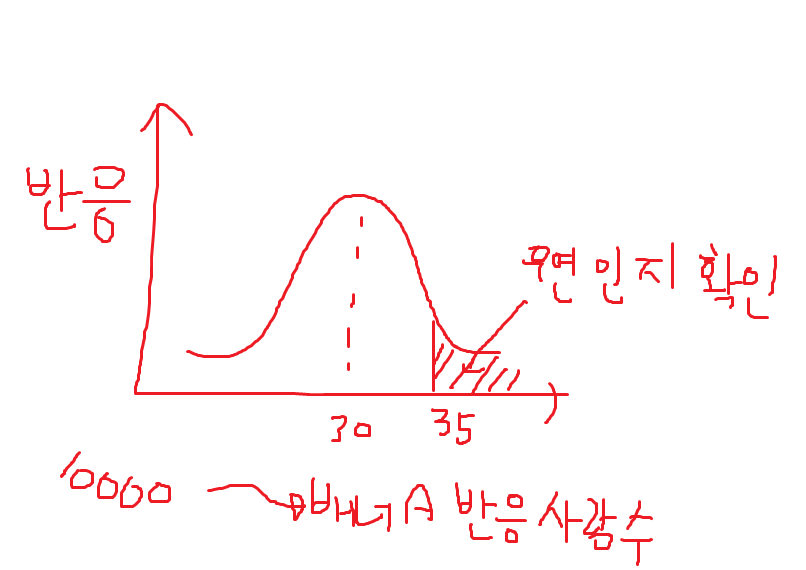 반응
우연인지 확인
30 35
10000 배너A 반응사람수